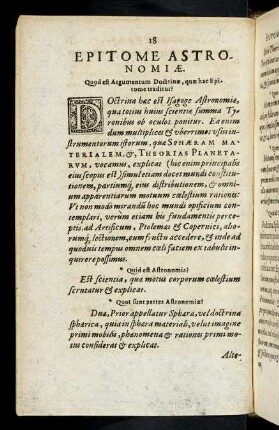 18
EPITOME ASTRO-
NOMIÆ.
Quod est Argumentum Doctrinæ, quæ hac Epi-
tome traditur?
DOctrina hæc est Isagoge Astronomiæ,
qua totius huius scientiæ summa Ty-
ronibus ob oculos ponitur. Ea enim
dum multiplices & vberrimos vsus in-
strumentorum istorum, quæ SPHÆRAM MA-
TERIALEM, & THEORIAS PLANETA-
RVM, vocamus, explicat (hic enim principalis
eius scopus est) simul etiam docet mundi constitu-
tionem, partiumq́; eius distributionem, & omni-
um apparentiarum motuum cœlestium rationes:
Vt non modò mirandũ hoc mundi opificium con-
templari, verùm etiam his fundamentis perce-
ptis, ad Artificum, Ptolemæi & Copernici, alio-
rumq́; lectionem, cum fructu accedere, & inde ad
quoduis tempus omnem cœli faciem ex tabulis in-
quirere possimus.
* Quid est Astronomia?
Est scientia, quæ motus corporum cœlestium
scrutatur & explicat.
* Quot sunt partes Astronomiæ?
Duæ, Prior appellatur Sphæra, vel doctrina
sphærica, quia in sphæra materiali, velut imagine
primi mobilis, phænomena & rationes primi mo-
tus considerat & explicat.
Alte-